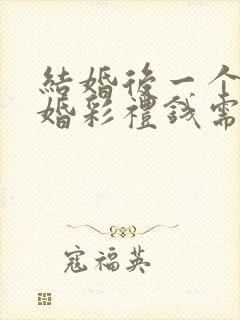 結婚後一个
婚彩禮錢需
寇福英